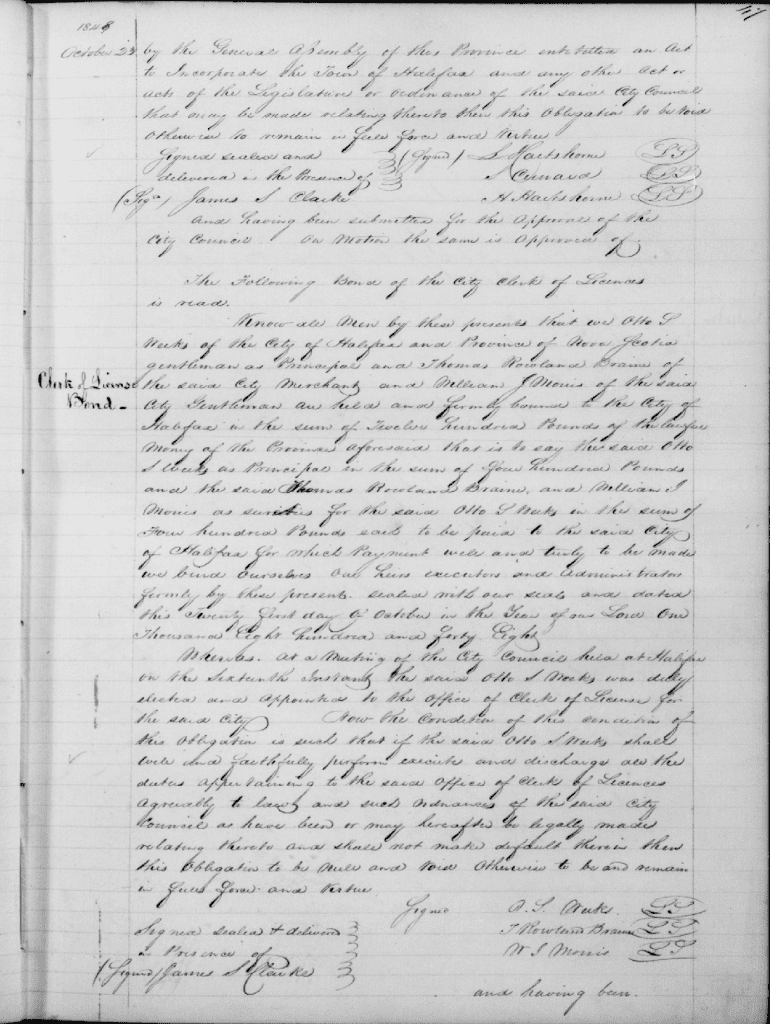 47
1848
October 23
by the General Assembly of this Province entitled an Act
to Incorporate the Town of Halifax and any other Act or
acts of the Legislature or ordinance of the said City Council
that may be made relating thereto then this Obligation to be void
Otherwise to remain in full force and virtue
Signed sealed and (Signed) S Hartshorne LS
delivered in the Presence of S Cunard LS
(Sigd) James S Clarke H Hartshorne LS
and having been submitted for the approval of the
City Council. On Motion the same is approved of.
The Following Bond of the City Clerk of Licences
is read.
Clerk of License
Bond-
Know all Men by these presents that we Otto S
Weeks of the City of Halifax and Province of Nova Scotia
gentleman as Principal and Thomas Rowland Braine of
the said City Merchant and William J Morris of the said
City Gentleman are held and firmly bound to the City of
Halifax in the sum of Twelve hundred Pounds of the lawful
Money of the Province aforesaid that is to say the said Otto
S Weeks as Principal in the sum of Four hundred Pounds
and the said Thomas Rowland Braine, and William J
Morris as sureties for the said Otto S Weeks in the sum of
Four hundred Pounds each to be paid to the said City
of Halifax for which Payment well and truly to be made
we bind ourselves our heirs executors and administrators
firmly by these presents. sealed with our seals and dated
this Twenty first day of October in the Year of our Lord One
Thousand Eight hundred and forty Eight
Whereas. at a Meeting of the City Council held at Halifax
on the Sixteenth Instant the said Otto S Weeks was duly
elected and appointed to the Office of Clerk of License for
the said City Now the Condition of this condition of
this Obligation is such that if the said Otto S Weeks shall
well and faithfully perform execute and discharge all the
duties appertaining to the said Office of Clerk of Licences
agreeably to law and such ordinances of the said City
Council as have been or may hereafter be legally made
relating thereto and shall not make default therein then
this Obligation to be Null and Void Otherwise to be and remain
in full force and virtue
Signed O. S. Weeks. LS
Signed sealed & delivered T Rowland Braine LS
in Presence of W J Morris LS
(Signed) James S Clarke
and having been.